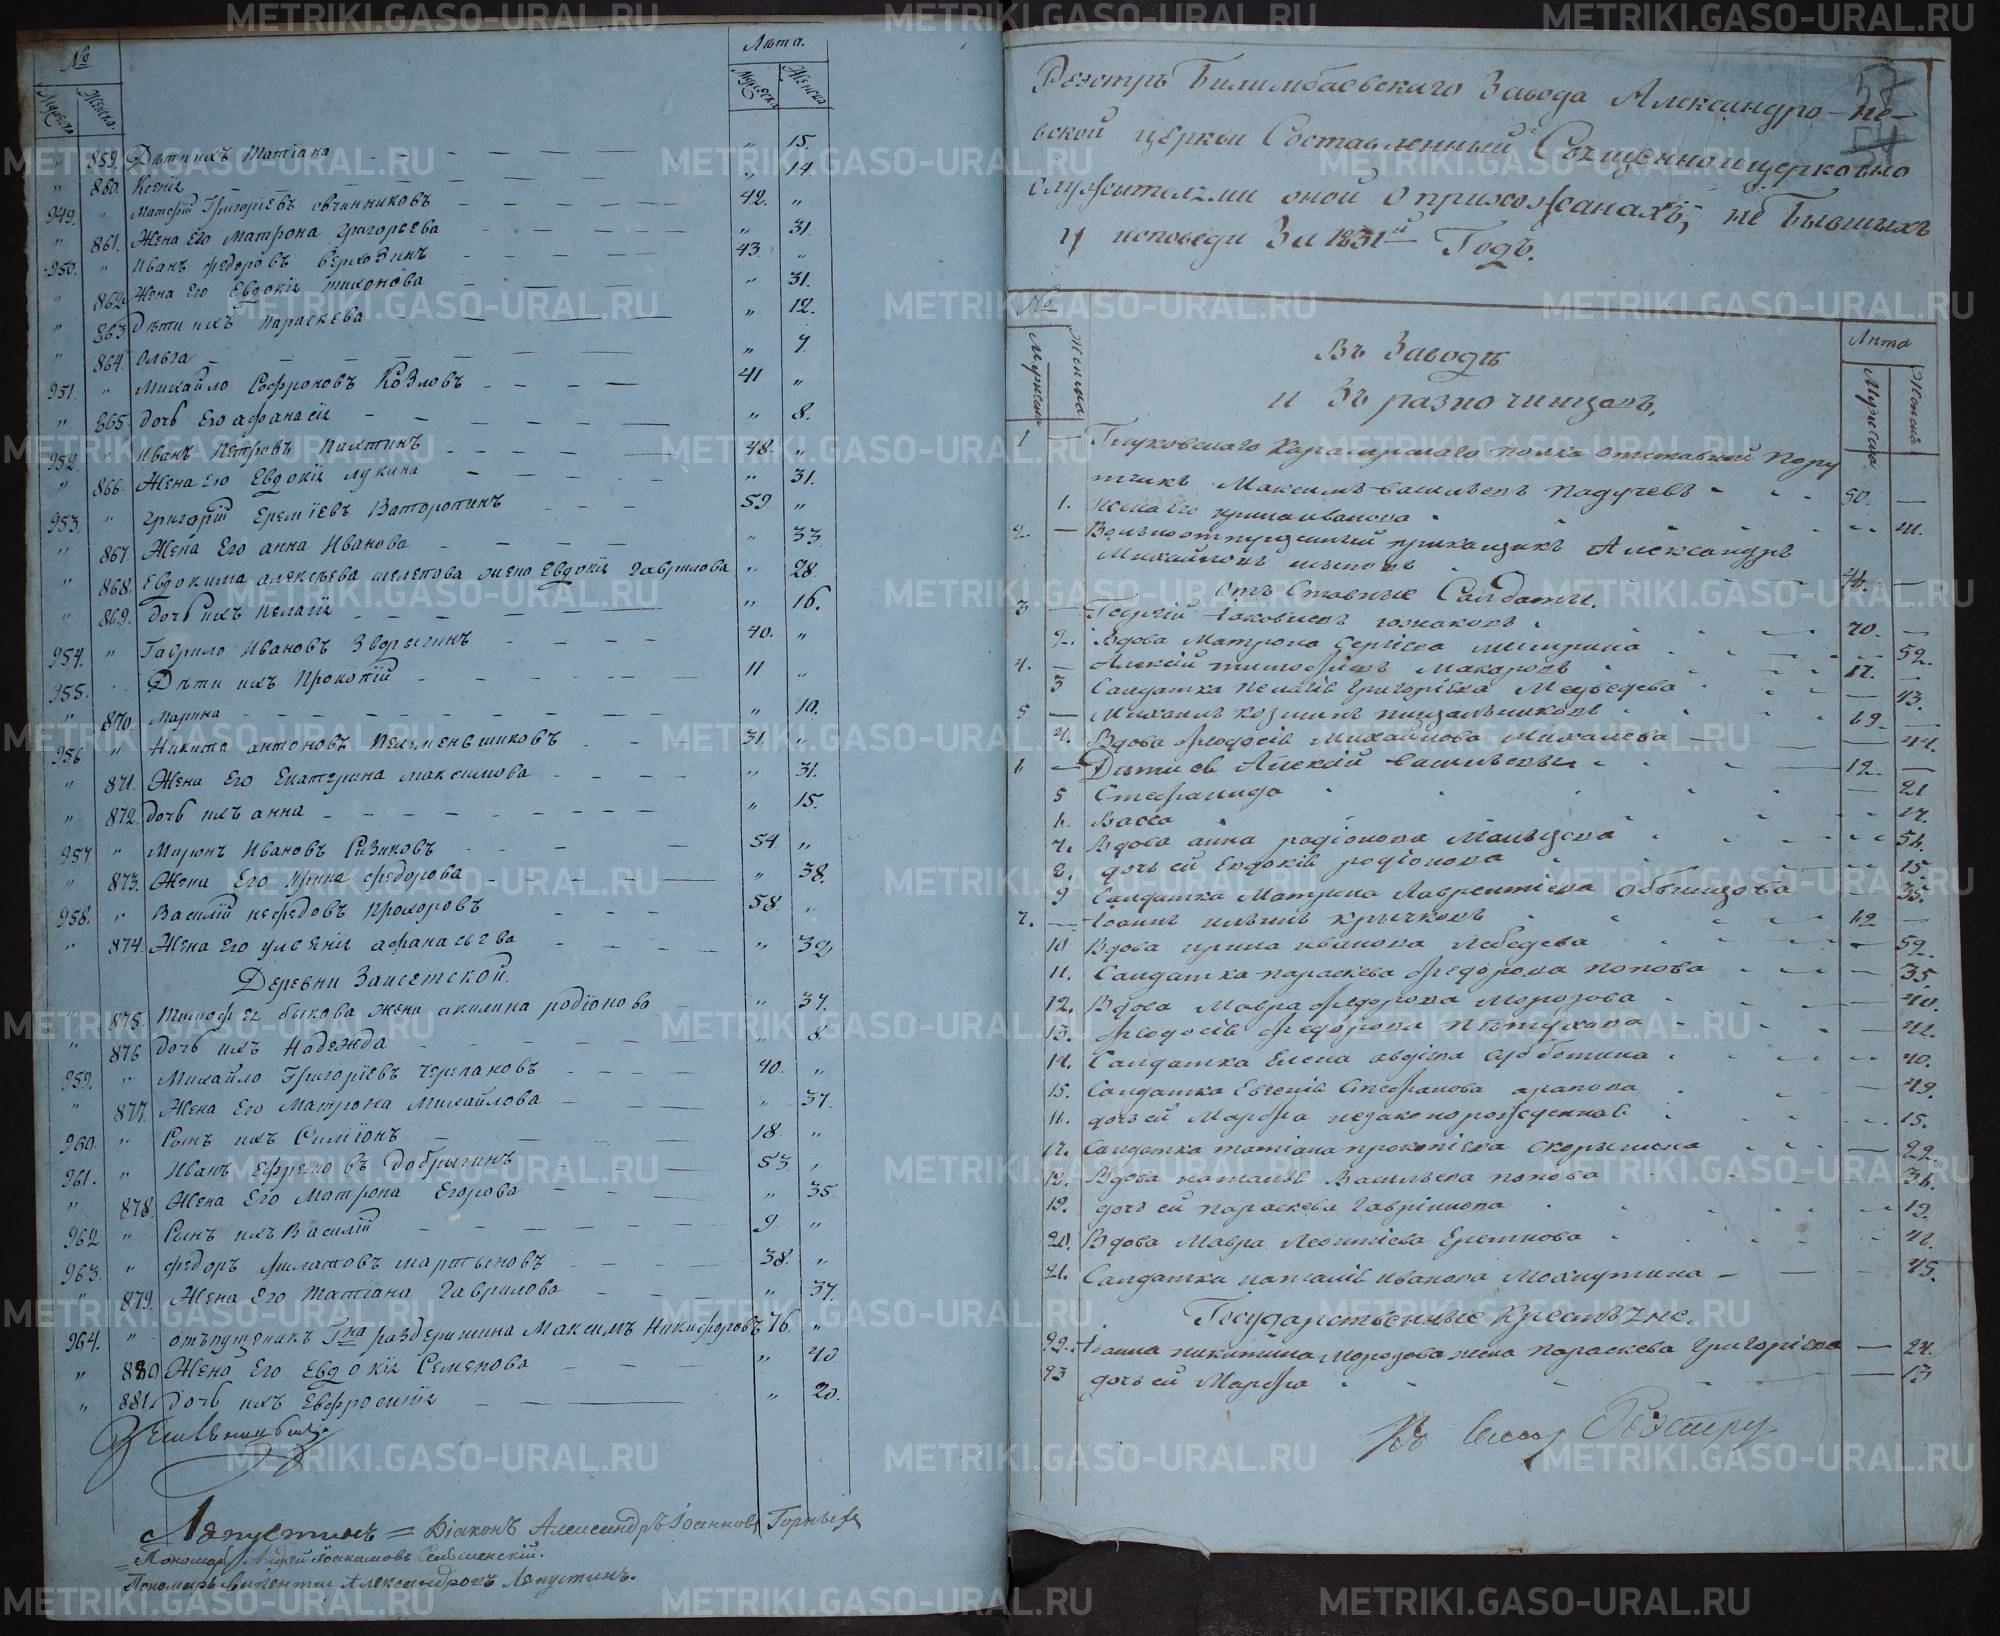 №
Мужеска
Женска
Лѣта.
Мужеска
Женска
" 859. Дѣти ихъ Татіана " 15.
" 860. Ксенія " 14
949. " Григоріевъ Овчинниковъ 42. "
" 861. Жена Его Матрона Григорьева " 31.
950. " Иванъ Федоровъ 43. "
" 862. Жена Его Евдокія Тихонова " 31.
" 863. Дѣти ихъ Параскева " 12.
" 864. Ольга " 7
951. " Михайло Софроновъ Козловъ 41 "
" 865. Дочь Его Афанасія " 8.
952. " Иванъ Петровъ 48. "
" 866. Жена Его Евдокія Лукина " 31.
953. " Григорій Еремѣевъ 59 "
" 867. Жена Его Анна Иванова " 33
" 868. Евдокима Алексѣева Шелепова жена Евдокія Гаврилова " 28.
" 869. Дочь ихъ Пелагія " 16.
954. " Гаврило Ивановъ Зворыгинъ 40. "
955. " Дѣти ихъ Прокопій 11 "
" 870. Марина " 10.
956 " Никита Антоновъ Пелеменьшиковъ 31. "
" 871. Жена Его Екатерина Максимова " 31.
" 872. Дочь ихъ Анна " 15.
957. " Миронъ Ивановъ Сизиковъ 54. "
" 873. Жена Его Ирина Федорова " 38.
958. " Василій Нефедовъ Прохоровъ 58. "
" 874. Жена Его Улсенія Афанасьева " 39
Деревни Заисетской.
" 875. Тимофея Быкова жена Акилина Родіонова " 37.
" 876 Дочь ихъ Надежда " 8.
959. " Михайло Григоріевъ Черепановъ 40. "
" 877. Жена Его Матрона Михайлова " 37.
960. " Сынъ ихъ Симіонъ 18. "
961. " Иванъ Ефремовъ Добрыгинъ 53. "
" 878. Жена Его Матрона Егорова " 35.
962 " Сынъ ихъ Василій 9. "
963. " Федоръ Филатовъ Мартьяновъ 38. "
" 879. Жена Его Татіана Гаврилова " 37.
964. " Максимъ Никифоровъ 76. "
" 880. Жена Его Евдокія Семенова " 40.
" 881. Дочь ихъ Евфросинія " 20.
Лапустинъ = Діаконъ Александръ Іоанновъ Горныхъ
Пономарь Андрей
Пономарь Викентій Александровъ Лапустинъ.
Реэстръ Билимбаевскаго Завода Александро-не-
вской церкви Составленный Священноицерковно
служителями оной о прихожанахъ, не бывшихъ
у исповеди За 1831й Годъ.
№
Мужеска
Женска
Лѣта
Мужеска
Женска
Въ Заводѣ
и Въ разночинцовъ.
1 — Глуховскаго Кирасирскаго полка отставной Пору
тчикъ Максимъ Васильевъ Падучевъ 50. —
1. Жена Его Ирина Иванова 41.
2. — Вольноотпущенный прикащикъ Александръ
Михайловъ 46. —
Отъ Ставные Салдаты.
3 — Георгій Іаковлевъ 70. —
2. Вдова Матрона Сергіева 52.
4. — Алексій Тимофіевъ Макаровъ 17. —
3 Салдатка Пелагія Григоріева Медведева — 43.
5 — Михаилъ Козминъ Пищальниковъ 19. —
4. Вдова Феодосія Михайлова Михалева — 44.
6 — Дѣти ея Алексій Васильевы 12. —
5 Стефанида — 21
6. Васса 17.
7. Вдова Анна Родіонова Мальцева 56.
8. дочь ея Евдокія Родіонова 15.
9 Салдатка Матрина Лаврентіева 35.
7. — Іоаннъ Ильинъ Крычковъ 12 —
10 Вдова Ирина Иванова Лебедева 52.
11. Салдатка Параскева Федорова Попова — 35.
12. Вдова Мавра Федорова Морозова — 40.
13. Феодосія Федорова Пѣтухова — 42.
14. Салдатка Елена Авдіева Субботина 40.
15. Салдатка Евгенія Стефанова Арапова — 49.
16. дочь ея Марфа незаконорожденная 15.
17. Салдатка Татіана Прокопіева — 22.
18. Вдова Наталія Васильева Попова 36.
19. дочь ея Параскева Гавріилова 19.
20. Вдова Мавра Леонтіева 42.
21. Салдатка Наталія Иванова — 45.
Государственные Крестьяне.
22. Іоанна Никитина Морозова жена Параскева Григоріева — 24.
23 дочь ея Марфа — 13
Къ Сему Реэстру